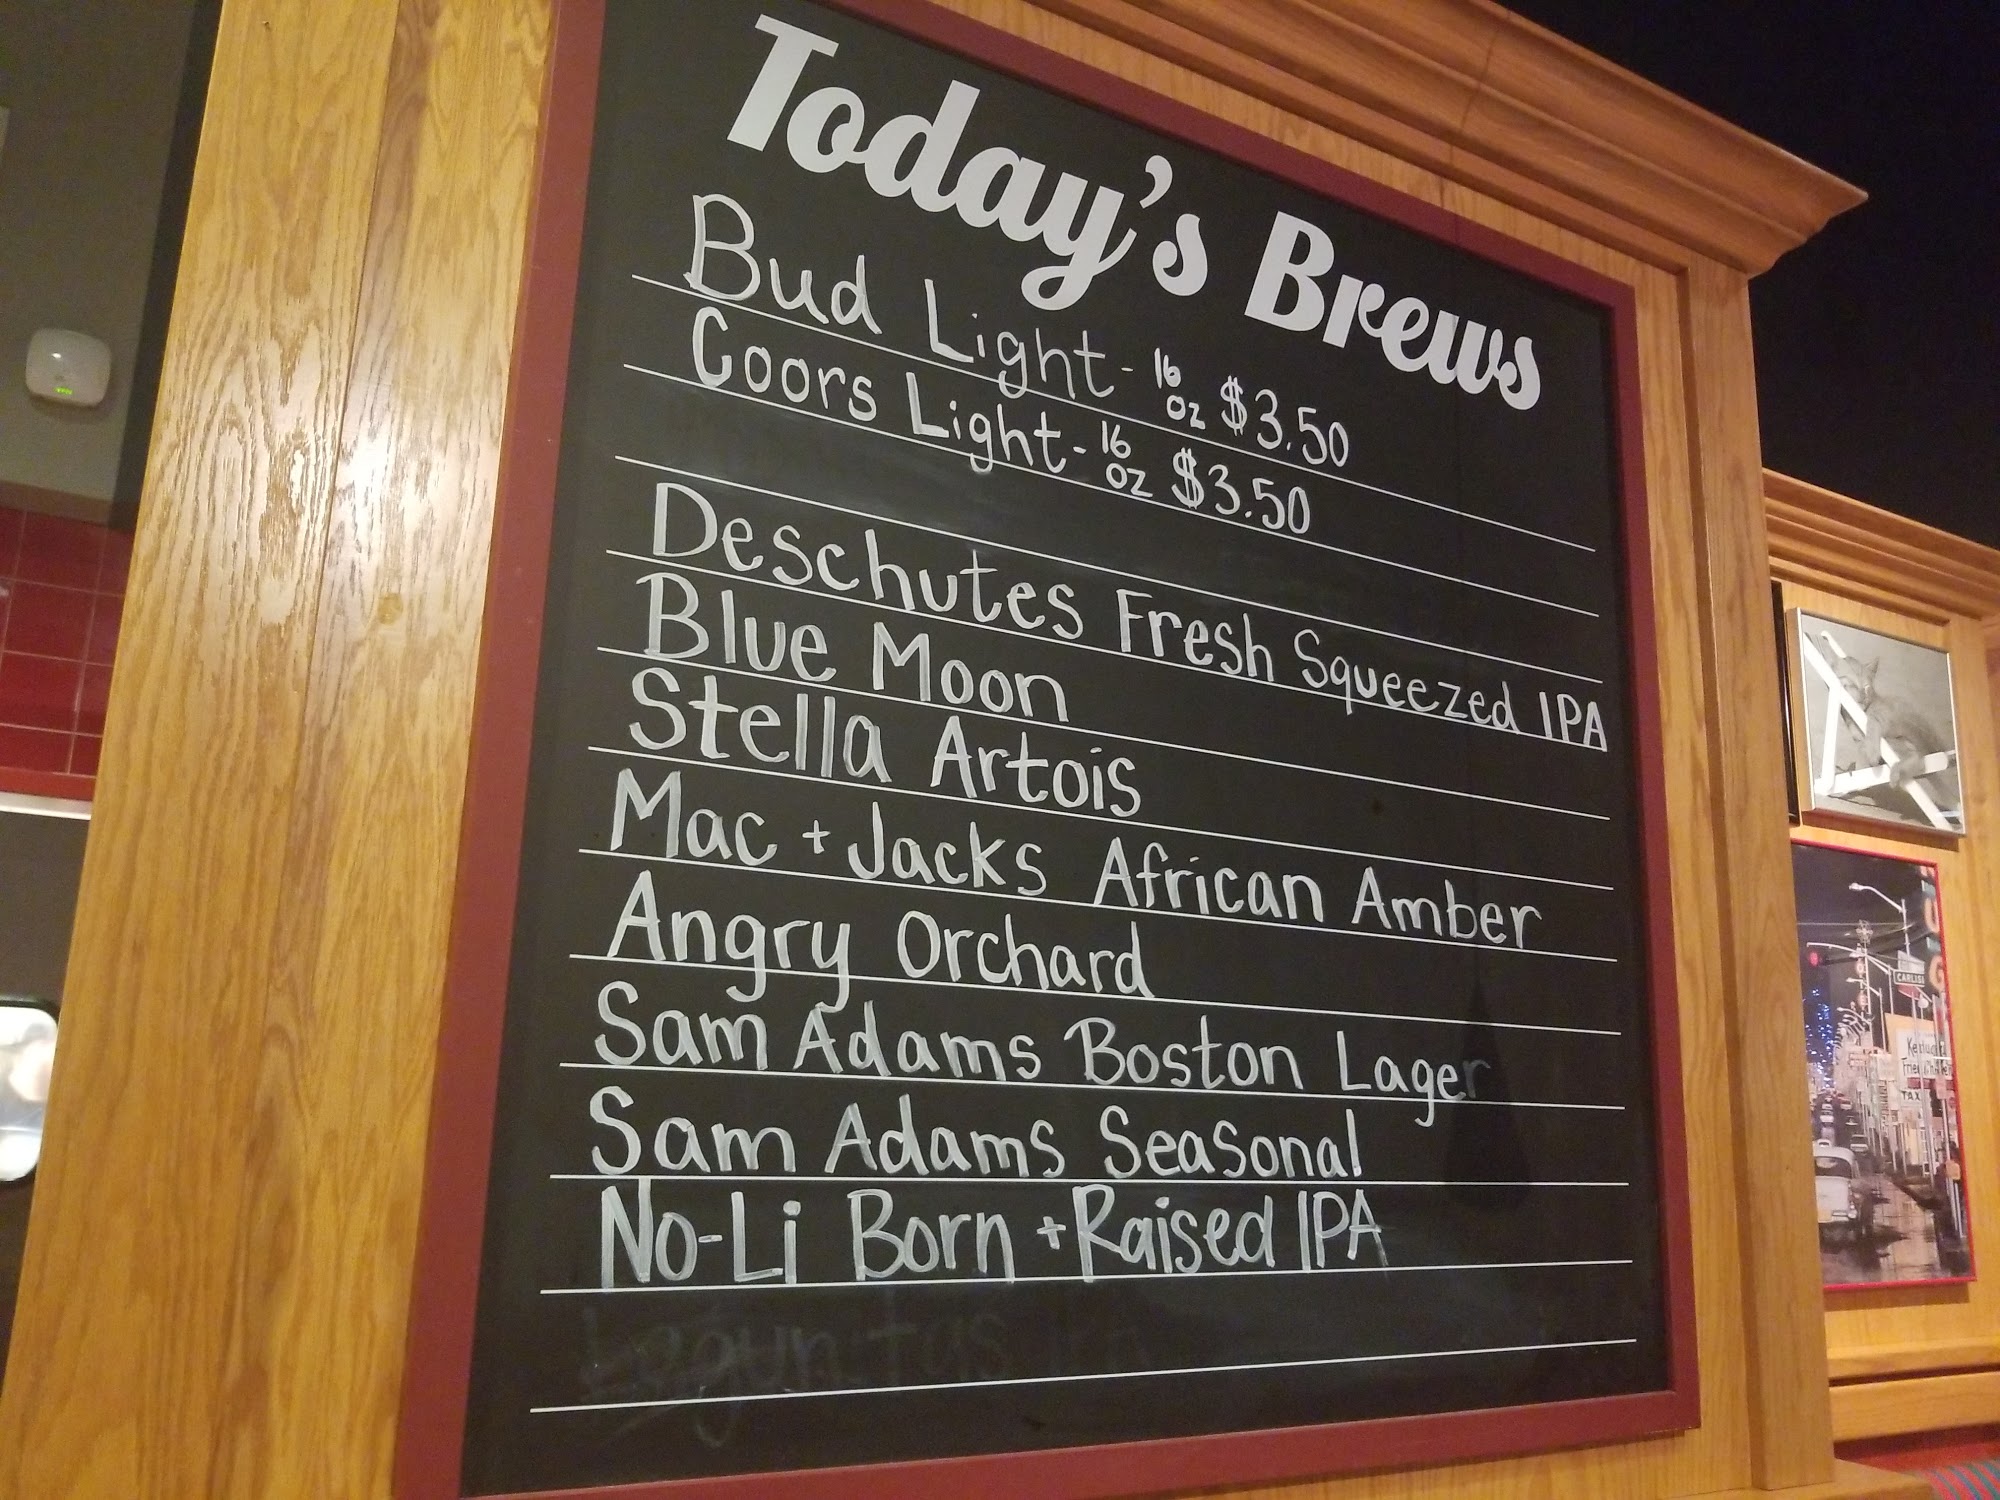 Today's Brews
Bud Light - 16 oz $3.50
Coors Light - 16 oz $3.50
Deschutes Fresh Squeezed IPA
Blue Moon
Stella Artois
Mac + Jacks African Amber
Angry Orchard
Sam Adams Boston Lager
Sam Adams Seasonal
No-Li Born + Raised IPA
Lagunitas
TAX